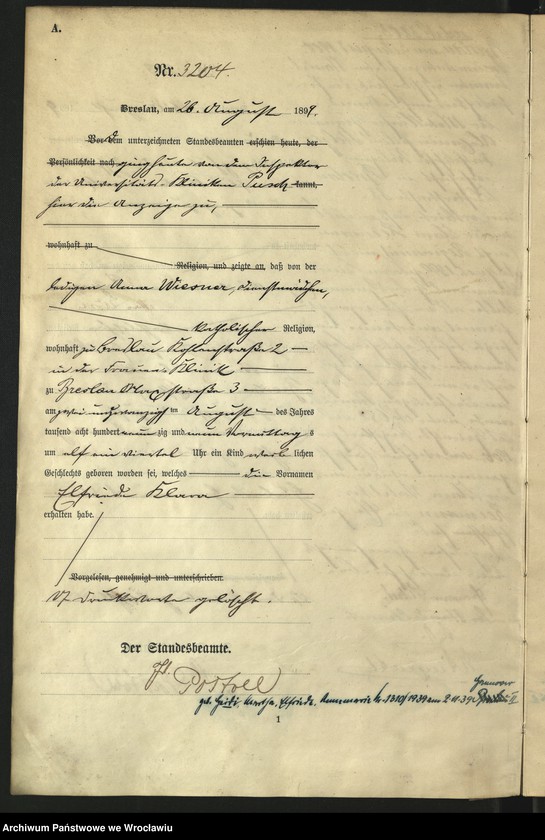 A.
Nr. 3204.
Breslau, am 26. August 1899.
Vor dem unterzeichneten Standesbeamten erschien heute, der
Persönlichkeit nach ging heute von dem Inspektor
der Universitäts-Kliniken Pusch kannt,
hier die Anzeige zu,
wohnhaft zu
Religion, und zeigte an, daß von der
ledigen Anna Wiesner, Dienstmädchen,
katholischer Religion,
wohnhaft zu Breslau Kohlenstraße 2
in der Frauen-Klinik
zu Breslau Maxstraße 3
am zwei und zwanzigsten August des Jahres
tausend acht hundert neunzig und neun Vormittags
um elf ein viertel Uhr ein Kind weiblichen
Geschlechts geboren worden sei, welches die Vornamen
Elfriede Klara
erhalten habe.
Vorgelesen, genehmigt und unterschrieben
17 Druckworte gelöscht.
Der Standesbeamte.
Hannover
Martha, Elfriede, Annemarie Nr. 1310/1939 am 2.11.39 II
1
Archiwum Państwowe we Wrocławiu